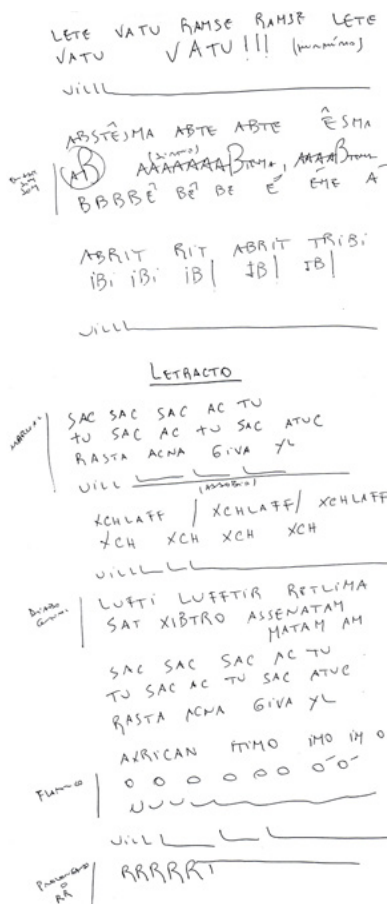 LETE VATU RAMSE RAMSE LETE
VATU VATU!!!
UiLLL
ABSTÊSMA ABTE ABTE ÊSMA
BBBBÊ BÊ BE É ÉME
ABRIT RIT ABRIT TRIBI
iBi iBi iB| IB| IB|
UiLLL
LETRACTO
SAC SAC SAC AC TU
TU SAC AC TU SAC ATUC
RASTA ACNA GIVA YL
UiLL
(ASSOBIO)
XCHLAFF / XCHLAFF / XCHLAFF
XCH XCH XCH XCH
UiLLL
LUFTI LUFFTIR RETLIMA
SAT XIBTRO ASSENATAM
MATAM AM
SAC SAC SAC AC TU
TU SAC AC TU SAC ATUC
RASTA ACNA GIVA YL
AXRICAN ITIMO IMO IM O
O O O O O O O O
UiLL
RRRRRR